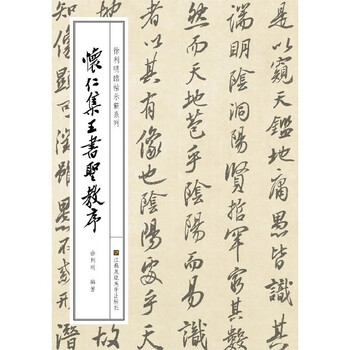 以窺天鑑地庸愚皆識
端明陰洞陽賢哲罕窮其數
然而天地苞乎陰陽而易識
者以其有像也陰陽處乎天
徐利明臨帖示範系列
懷仁集王書聖教序
徐利明 編著
江蘇鳳凰美術出版社